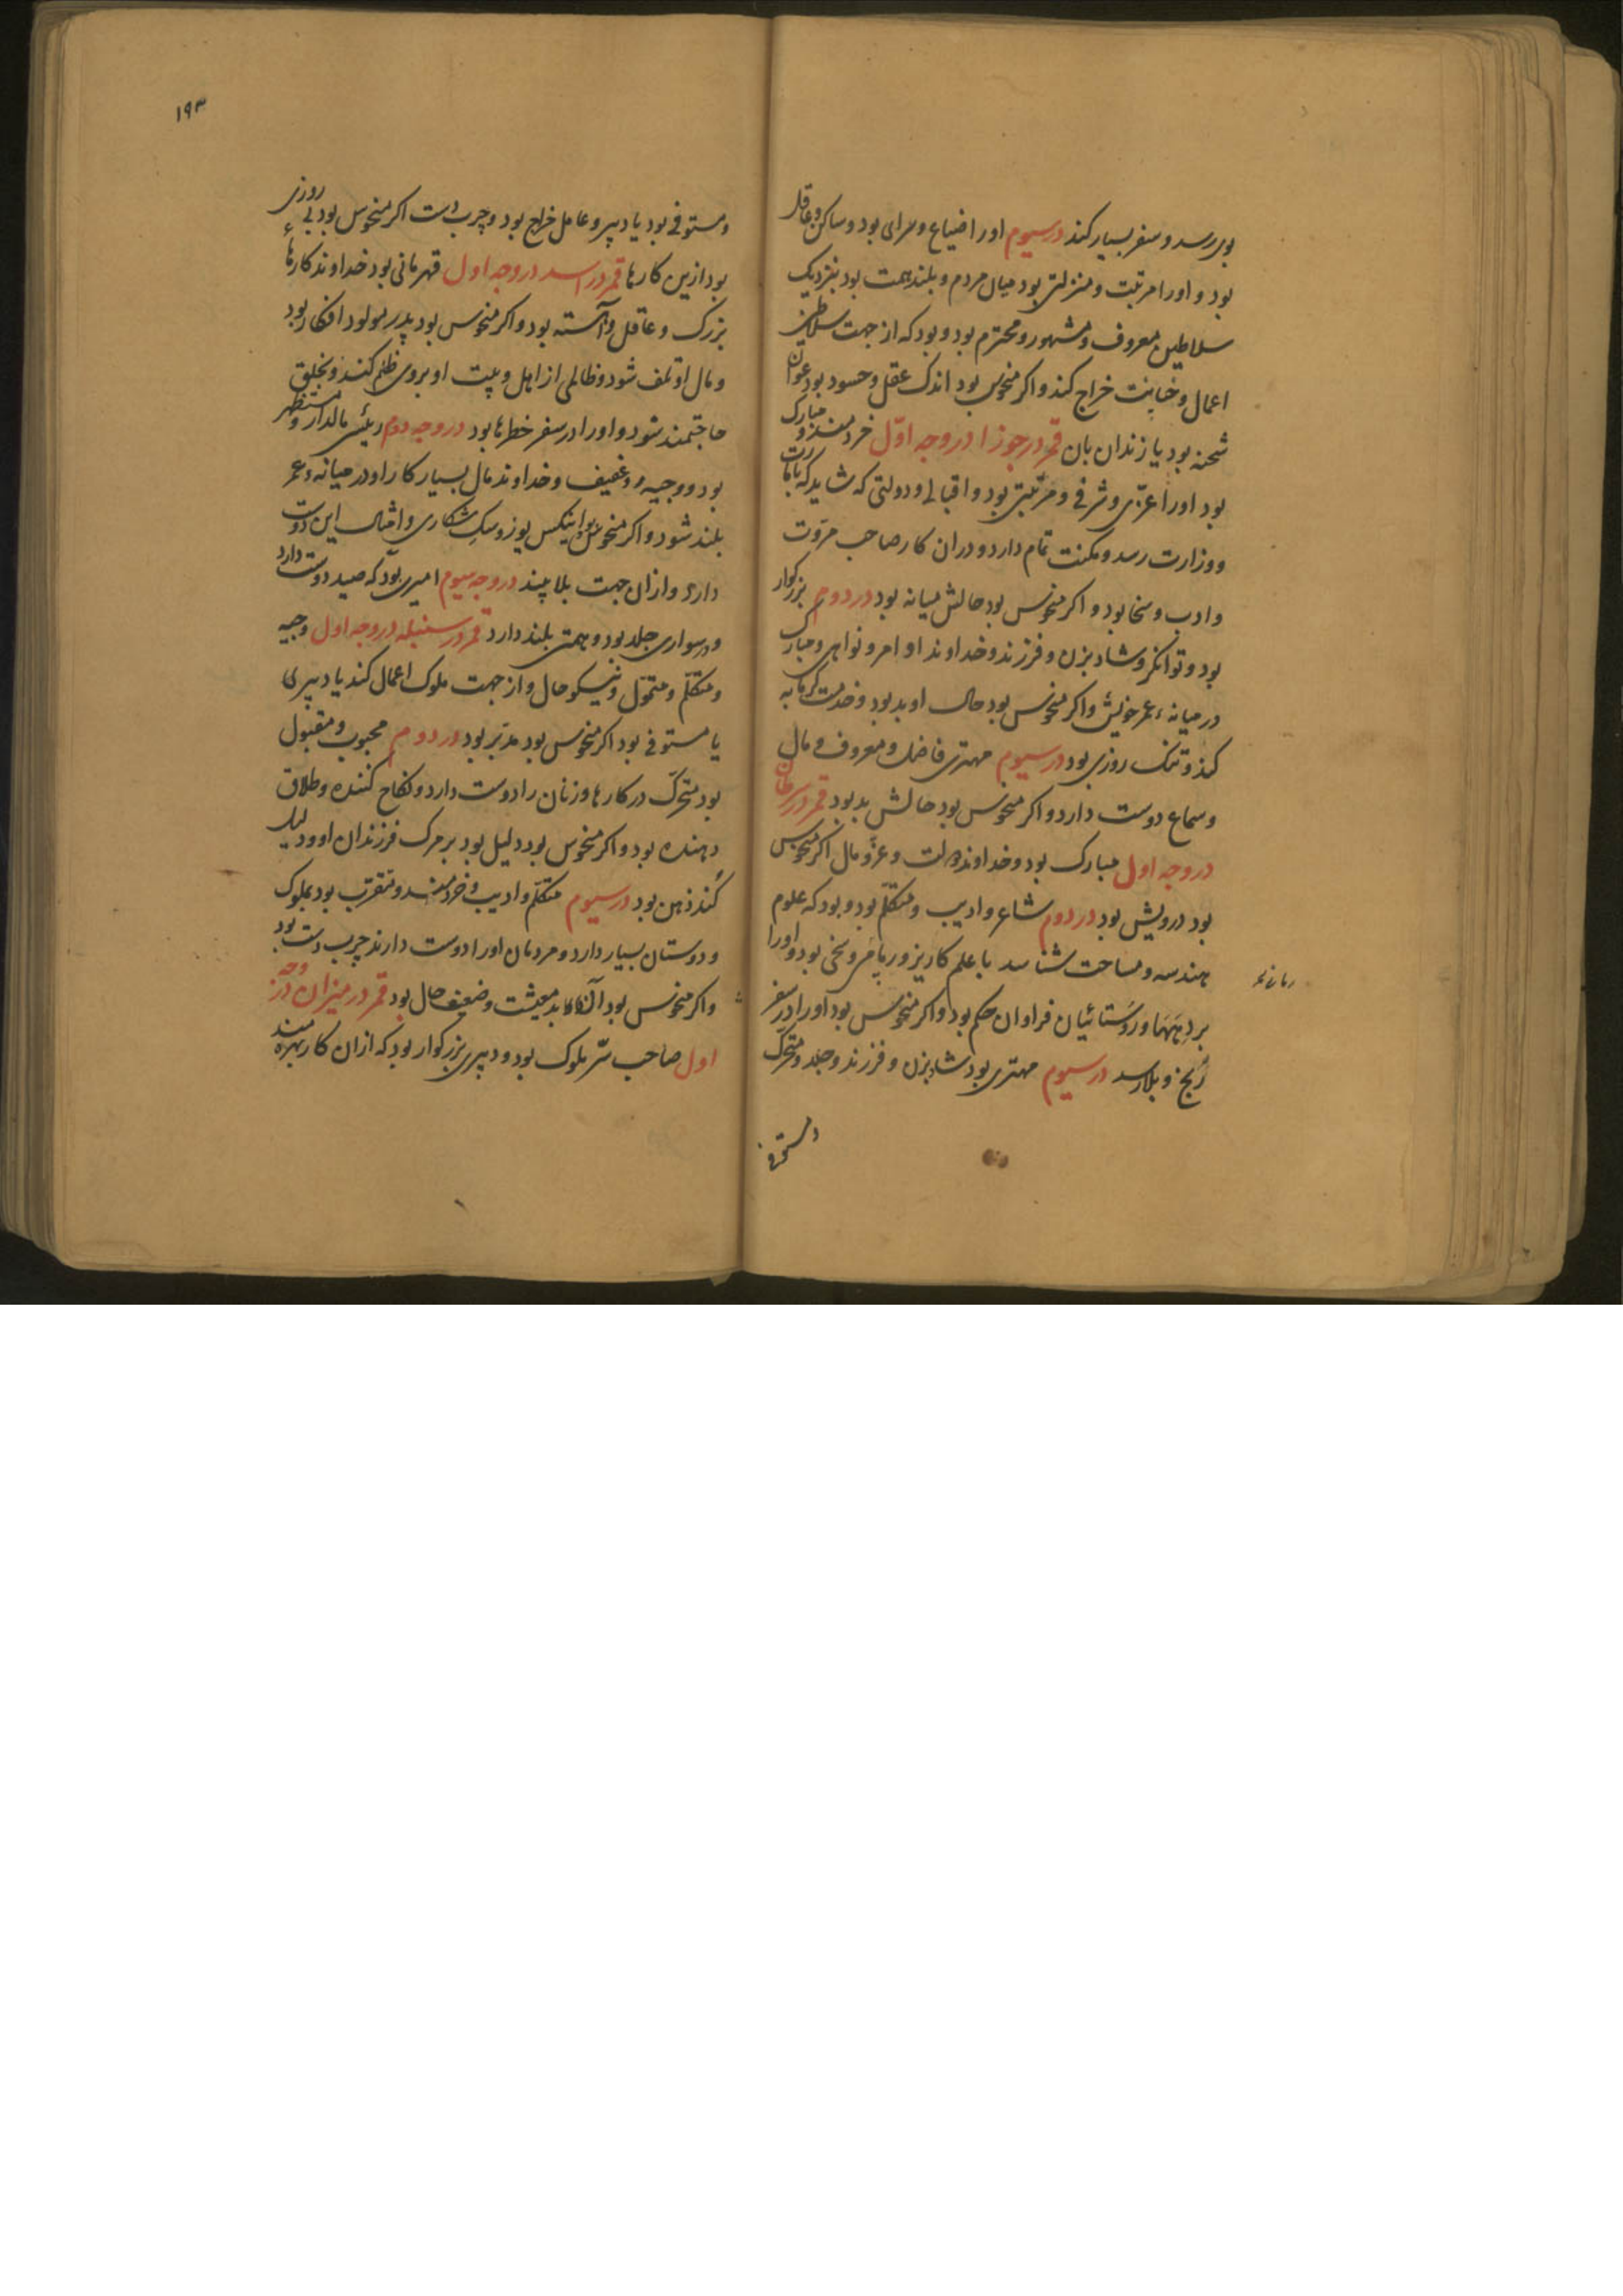 بوی رسد و سفر بسیار کند در سیوم او را ضیاع و سرای بود و ساکن و عاقل
بود و او را مرتبت و منزلتی بود میان مردم و بلند همت بود بنزدیک
سلاطین معروف و مشهور و محترم بود و بود که از جهت سلاطین
اعمال و خیانت خراج کند و اکر منحوس بود اندک عقل و حسود بود عوان
شحنه بود یا زندان بان قمر در جوزا در وجه اوّل خردمند و مبارک
بود او را عزّی و شرفی و مرتبتی بود و اقبالی و دولتی که شاید که
و وزارت رسد و مکنت تمام دارد و دران کار صاحب مروّت
و ادب و سخا بود و اکر منحوس بود حالش میانه بود در دوم بزرکوار
بود و توانکر و شاد بزن و فرزند و خداوند او امر و نواهی و مبارک
در میانهٔ عمر خویش و اکر منحوس بود حال او بد بود و خدمت کرمابه
کند و تنک روزی بود در سیوم مهتری فاضل و معروف و مال
و سماع دوست دارد و اکر منحوس بود حالش بد بود قمر در سرطان
در وجه اول مبارک بود و خداوند دولت و عزّ و مال اکر منحوس
بود درویش بود در دوم شاعر و ادیب و متکلّم بود و بود که علوم
هندسه و مساحت شناسد با علم کاریز و سخی بود و او را
بر دیهها و روستائیان فراوان حکم بود و اکر منحوس بود او را در سفر
رنج و بلا رسد در سیوم مهتری بود شاد بزن و فرزند و جلد و متحرّک
و مستوفی
۱۹۳
و مستوفی بود یا دبیر و عامل خراج بود و چرب دست اکر منحوس بود بی روزی
بود ازین کارها قمر در اسد در وجه اول قهرمانی بود خداوند کارهاء
بزرک و عاقل و آهسته بود و اکر منحوس بود پدر مولود افکار بود
و مال او تلف شود و ظالمی از اهل و بیت او بروی ظلم کند و بخلق
حاجتمند شود و او را در سفر خطرها بود در وجه دوم رئیسی مالدار و مستظهر
بود و وجیه و عفیف و خداوند مال بسیار کار او در میانهٔ عمر
بلند شود و اکر منحوس بود یوز و سک شکاری و امثال این دوست
دارد و ازان جهت بلا بیند در وجه سیوم امیری بود که صید دوست دارد
و در سواری جلد بود و همتی بلند دارد قمر در سنبله در وجه اول وجیه
و متکلّم و متموّل و نیکو حال و از جهت ملوک اعمال کند یا دبیری
یا مستوفی بود اکر منحوس بود مدبر بود در دوم محبوب و مقبول
بود متحرّک در کارها و زنان را دوست دارد و نکاح کننده و طلاق
دهنده بود و اکر منحوس بود دلیل بود بر مرک فرزندان او و دلیل
کُند ذهن بود در سیوم متکلّم و ادیب و خردمند و متقرّب بود بملوک
و دوستان بسیار دارد و مردمان او را دوست دارند چرب دست بود
و اکر منحوس بود آنکاه بد معیشت و ضعیف حال بود قمر در میزان در وجه
اول صاحب سرّ ملوک بود و دبیری بزرکوار بود که ازان کار بهره‌مند